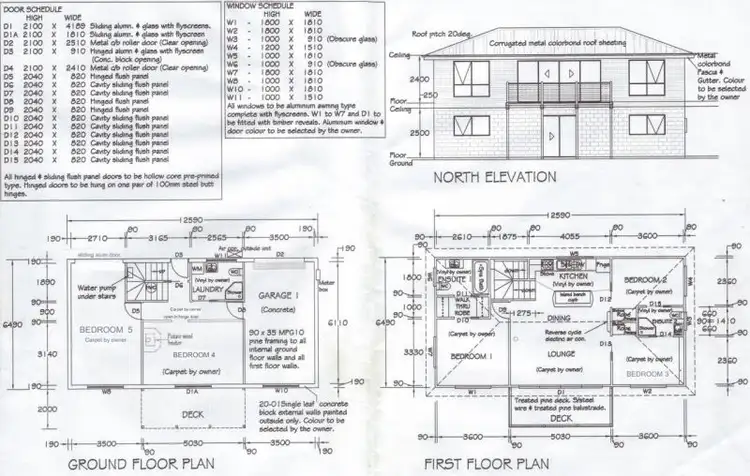 DOOR SCHEDULE
HIGH WIDE
D1 2100 X 4185 Sliding alumn. & glass with flyscreens.
D1A 2100 X 1810 Sliding alumn & glass with flyscreen
D2 2100 X 2510 Metal c/b roller door (Clear opening)
D3 2100 X 910 Hinged alumn & glass with flyscreen
(Conc. block opening)
D4 2100 X 2410 Metal c/b roller door (Clear opening)
D5 2040 X 820 Hinged flush panel
D6 2040 X 820 Cavity sliding flush panel
D7 2040 X 820 Cavity sliding flush panel
D8 2040 X 820 Hinged flush panel
D9 2040 X 820 Hinged flush panel
D10 2040 X 820 Cavity sliding flush panel
D11 2040 X 820 Cavity sliding flush panel
D12 2040 X 820 Cavity sliding flush panel
D13 2040 X 820 Cavity sliding flush panel
D14 2040 X 820 Cavity sliding flush panel
D15 2040 X 820 Cavity sliding flush panel
All hinged & sliding flush panel doors to be hollow core pre-primed
type. Hinged doors to be hung on one pair of 100mm steel butt
hinges.
WINDOW SCHEDULE
HIGH WIDE
W1 - 1800 X 1810
W2 - 1800 X 1810
W3 - 1000 X 910 (Obscure glass)
W4 - 1200 X 1510
W5 - 1000 X 1810
W6 - 1000 X 910 (Obscure glass)
W7 - 1800 X 1810
W8 - 1000 X 1810
W10 - 1000 X 1810
W11 - 1000 X 1510
All windows to be aluminum awning type
complete with flyscreens. W1 to W7 and D1 to
be fitted with timber reveals. Aluminum window &
door colour to be selected by the owner.
Roof pitch 20deg.
Corrugated metal colorbond roof sheeting
Ceiling
2400
250
Floor
Ceiling
2500
Floor
Ground
Metal
colorbond
Fascia &
Gutter. Colour
to be selected
by the owner
NORTH ELEVATION
12590
90 90 90
190 2710 3165 2565 3500 190
Air con. outside unit
W11
D3
D2
Water pump
under stairs
WM
LAUNDRY
(Vinyl by owner)
D7
Meter
box
GARAGE 1
(Concrete)
1800
90
900
90
3140
190
2000
6490
6110
190
D5
D8
BEDROOM 5
Carpet by owner
BEDROOM 4
(Carpet by owner)
90 x 35 MPG10
pine framing to all
internal ground
floor walls and all
first floor walls.
W8
D1A
W10
DECK
20-01Single leaf concrete
block external walls painted
outside only. Colour to be
selected by the owner.
190 3500 5030 3500 190
GROUND FLOOR PLAN
12590
90 90 90
90 2610 1875 4055 3600 90
W5
ENSUITE
(Vinyl by owner)
D11
WALK
THRU
ROBE
D10
KITCHEN
(Vinyl by owner)
Island bench
Frge
D12
BEDROOM 2
(Carpet by owner)
D15
(Vinyl by owner)
ENSUITE
D14
1275
DINING
Reverse cycle
electric air con.
D13
(Carpet by owner)
BEDROOM 1
LOUNGE
(Carpet by owner)
(Carpet by owner)
BEDROOM 3
W1
D1
W2
Treated pine deck. S/steel
wire & treated pine balustrade.
DECK
90
1800
90
900
90
3330
90
6490
2360
660
90
1410
660
2360
90
90 3600 5030 3600 90
FIRST FLOOR PLAN